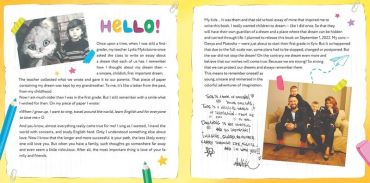 HELLO!
Once upon a time, when I was still a first-
grader, my teacher Lydia Mykolaivna once
asked the class to write an essay about
a dream that each of us has. I remember
how I thought about my dream then –
a simple, childish, first important dream.
The teacher collected what we wrote and gave it to our parents. That piece of paper
containing my dream was kept by my grandmother. To me, it's like a letter from the past,
from my childhood.
Now I am much older than I was in the first grade. But I still remember with a smile what
I wished for then. On my piece of paper I wrote:
«When I grow up, I want to sing, travel around the world, learn English and for everyone
to love me.»
And you know, almost everything really came true for me! I sing as I wanted. I travel the
world with concerts, and study English hard. Only I understand something else about
love. Now I know that the larger and more successful is your path, the less likely every
one will love you. But when you have a family, such thoughts go somewhere far away
and even seem a little ridiculous. After all, the most important thing is love of your fa-
mily and friends.
My kids... It was them and that old school essay of mine that inspired me to
write this book. I really wanted children to dream – like I did once. So that they
will have their own guardian of a dream and a place where that dream can be hidden
and carried through life. I planned to release this book on September 1, 2022. My sons –
Denys and Platosha – were just about to start their first grade in Kyiv. But it so happened
that due to the full-scale war, some plans had to be changed, postponed or stopped. But
the war did not stop the dream! On the contrary, we dream even more and
believe that our wishes will come true. Because we are strong! So strong
that we can protect our dreams and always remember them.
This means to remember oneself as
young, sincere and immersed in the
colorful adventures of imagination.